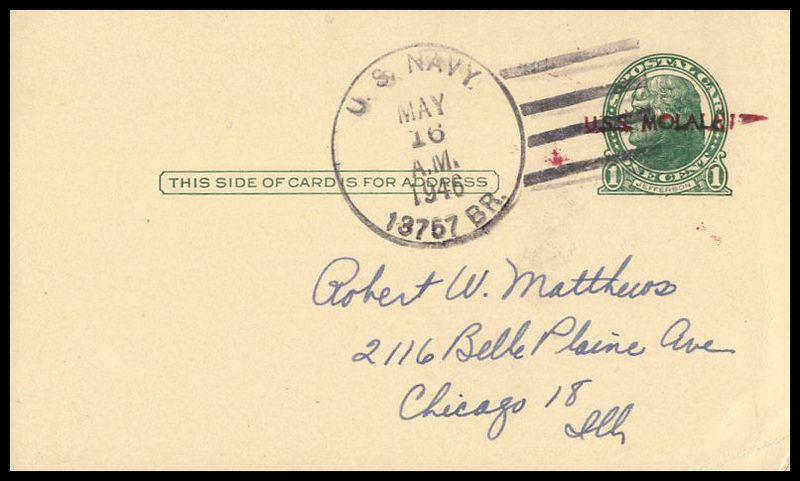 U. S. NAVY.
MAY
16
A.M.
1946
13757 BR.
U.S. POSTAL CARD
U.S.S. MOLALE
ONE CENT
1 JEFFERSON 1
THIS SIDE OF CARD IS FOR ADDRESS
Robert W. Matthews
2116 Belle Plaine Ave
Chicago 18
Ills